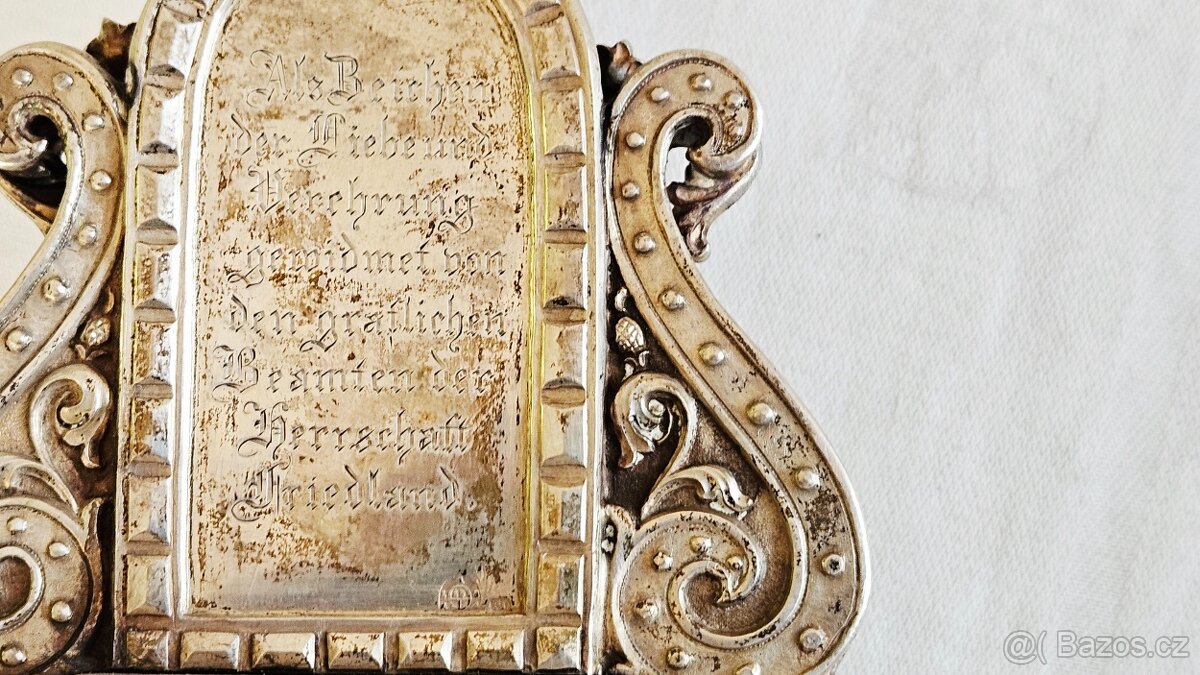 Als Zeichen
der Liebe und
Verehrung
gewidmet von
den gräflichen
Beamten der
Herrschaft
Friedland.
@( Bazos.cz